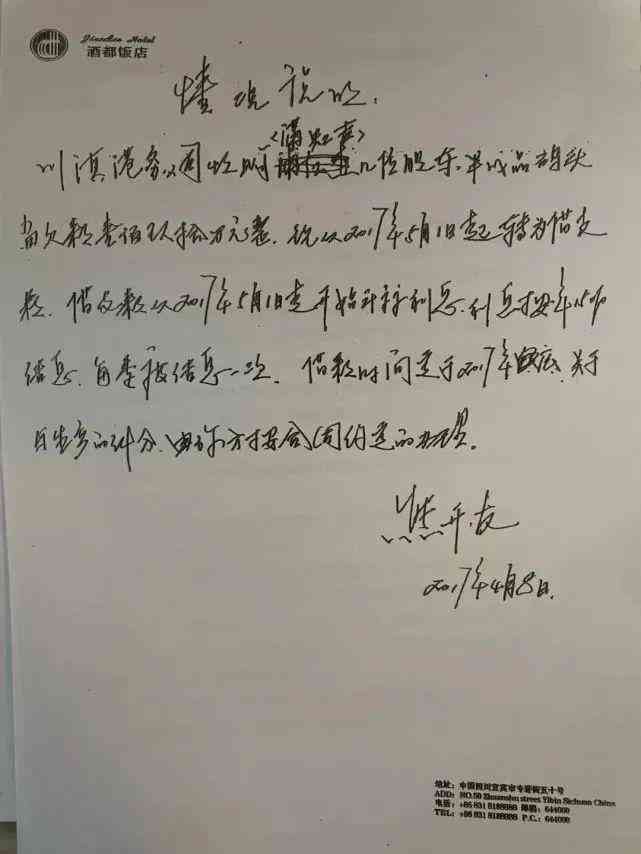 Jiudu Hotel
酒都饭店
情况说明
川滇港务公司收购 股东半成品码头
尚欠款壹佰玖拾万元整,现从2017年5月1日起转为借支
款。借支款从2017年5月1日起开始计算利息,利息按年15%
结息,每季度结息一次。借款时间定于2017年底,关于
方按合同约定的办理。
熊开友
2017年4月8日
地址:中国四川宜宾市专署街五十号
ADD: NO.50 Zhuanshu street Yibin Sichuan China
电话:+86 831 8188888 邮编:644000
TEL: +86 831 8188888 P.C.: 644000